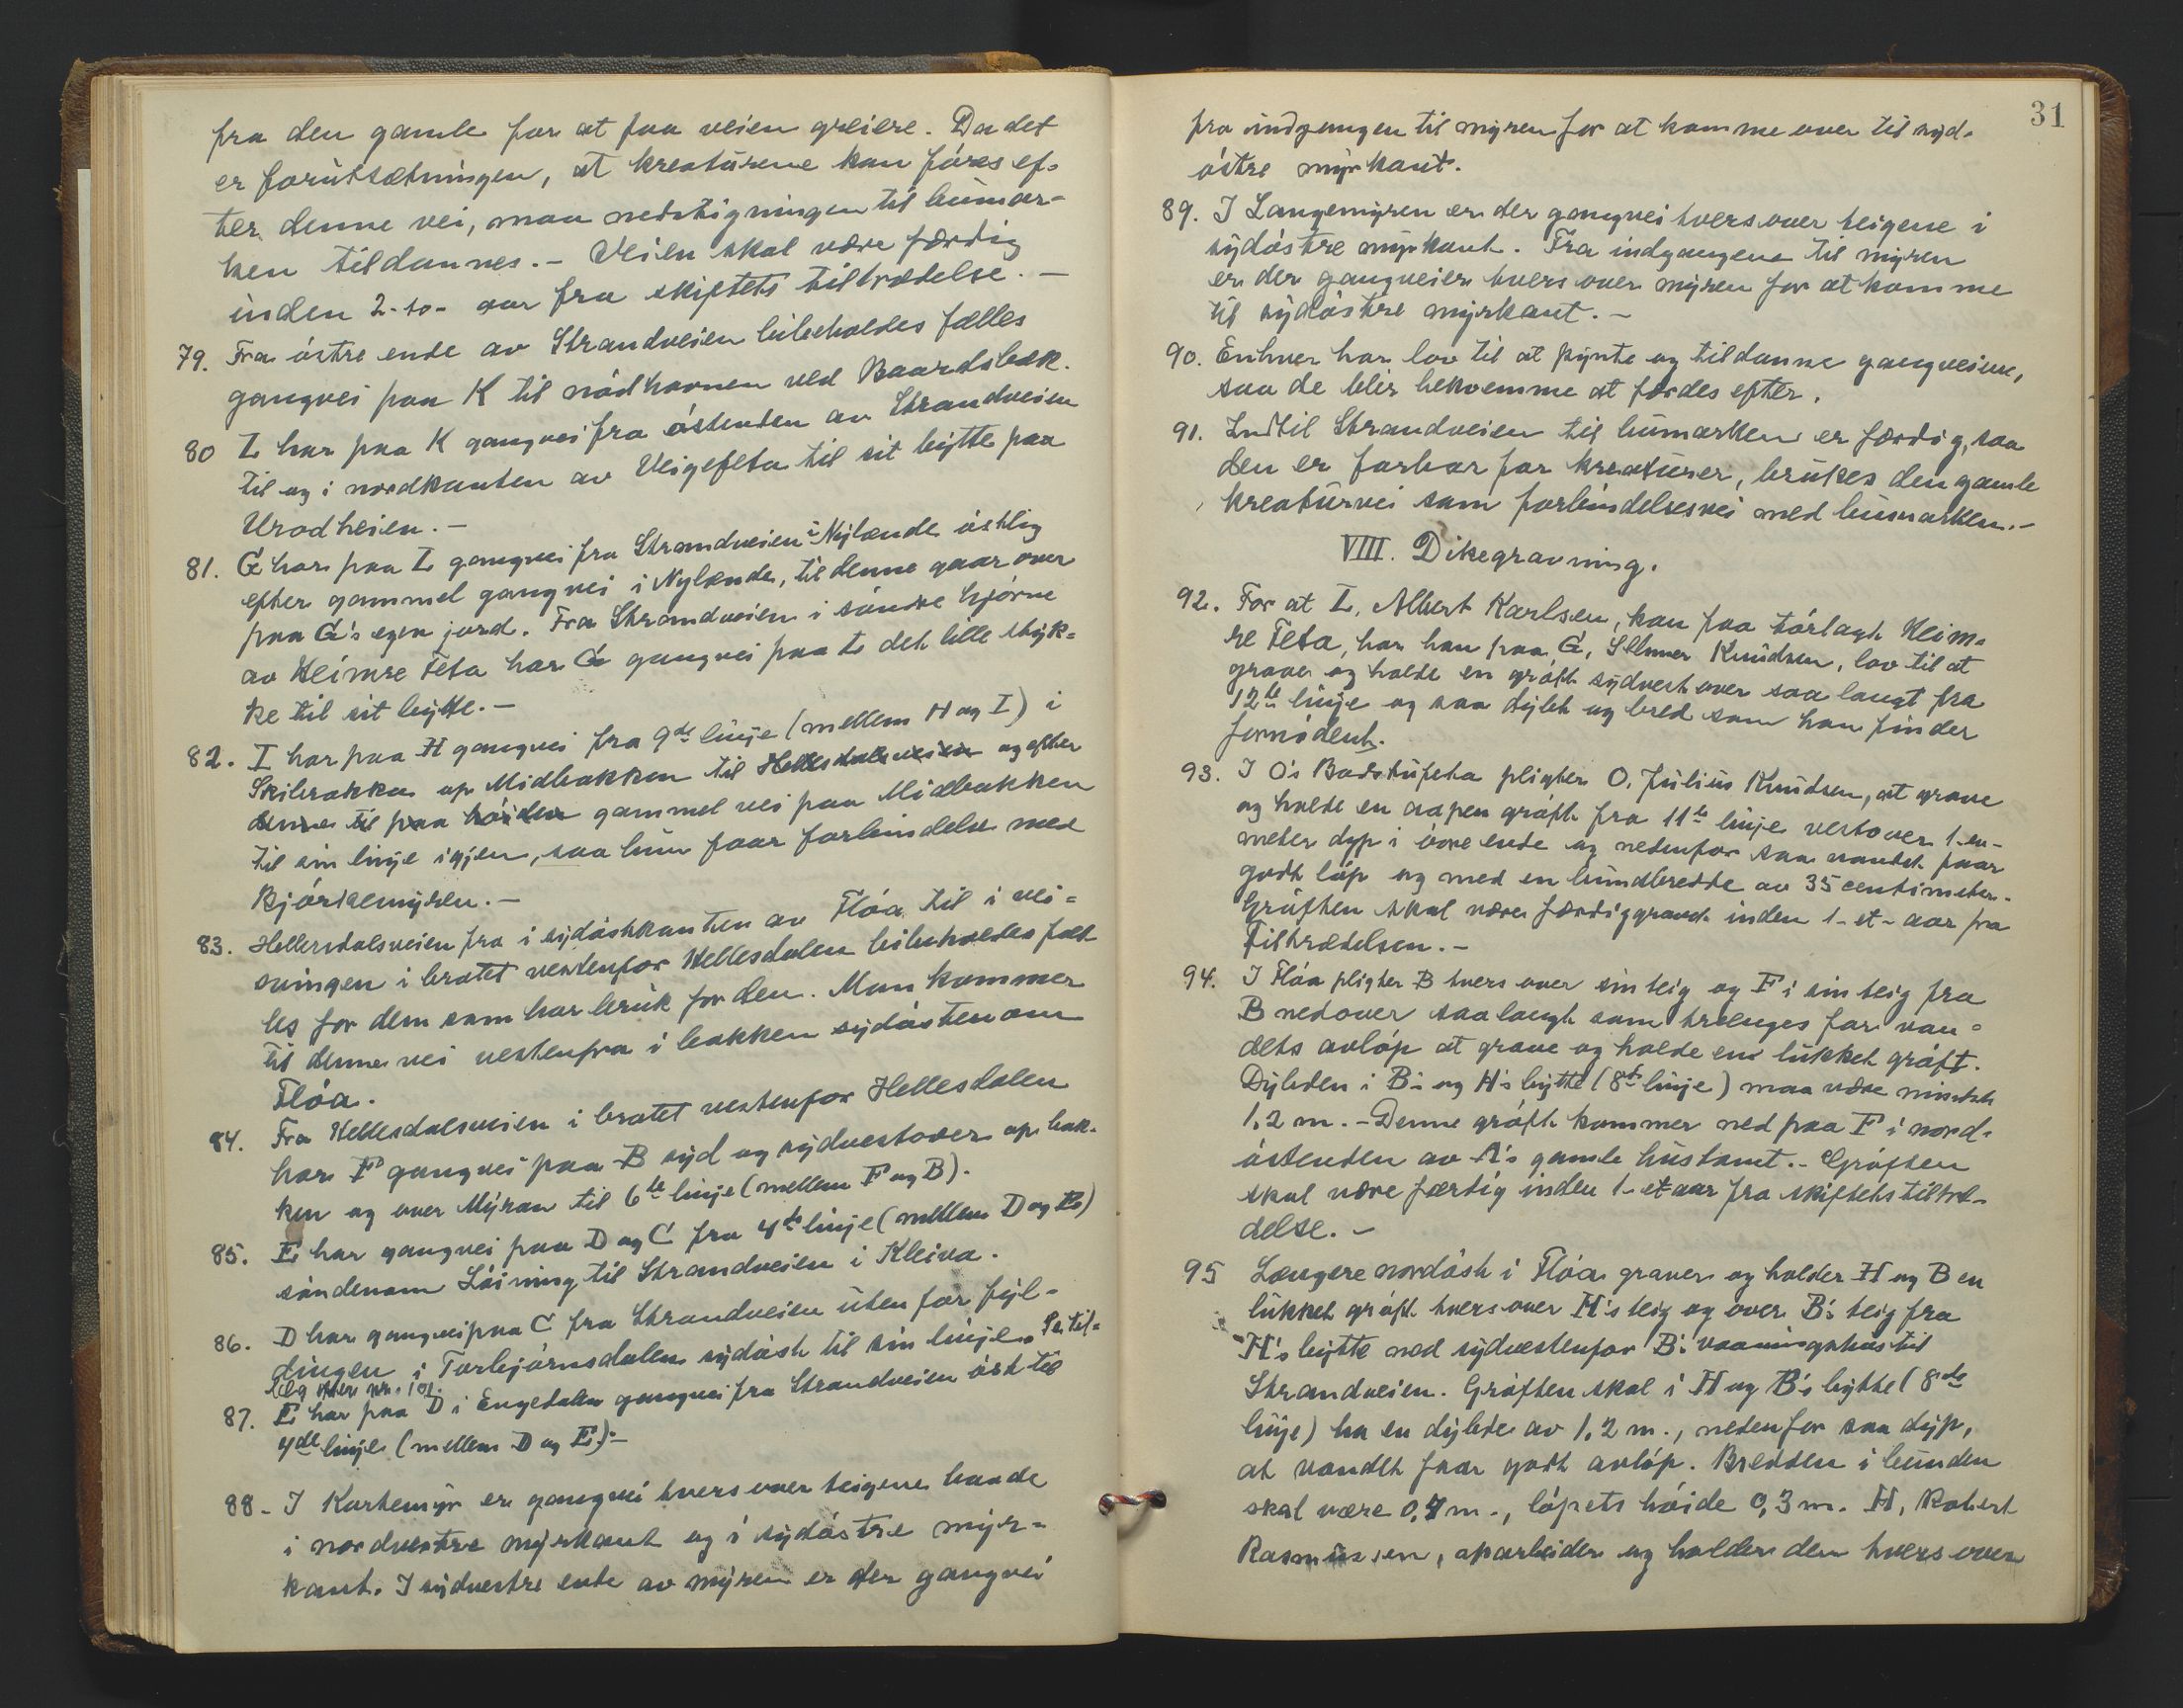 fra den gamle for at faa veien greiere. Da det
er forutsætningen, at kreaturene kan føres ef-
ter denne vei, maa nedstigningen til bumar-
ken tildannes. - Veien skal være færdig
inden 2 - to - aar fra skiftets tiltrædelse. -
79. Fra østre ende av Strandveien bibeholdes fælles
gangvei paa K til nødhavnen ved Baardsbæk.
80 L har paa K gangvei fra østenden av Strandveien
til og i nordkanten av Veigefeta til sit bytte paa
Urodheien. -
81. G har paa L gangvei fra Strandveien i Nylænde østlig
efter gammel gangvei i Nylænde, til denne gaar over
paa G's egen jord. Fra Strandveien i søndre hjørne
av Heimre Feta har G gangvei paa L det lille styk-
ke til sit bytte. -
82. I har paa H gangvei fra 9de linje (mellem H og I) i
Skibrækka op Midbakken til Hellesdalsveien og efter
denne til paa høiden gammel vei paa Midbakken
til sin linje igjen, saa hun faar forbindelse med
Bjørkemyren. -
83. Hellesdalsveien fra i sydøstkanten av Fløa til i svi-
svingen i bratet vestenfor Hellesdalen bibeholdes fæl-
les for dem som har bruk for den. Man kommer
til denne vei vestenfra i bakken sydøsten om
Fløa.
84. Fra Hellesdalsveien i bratet vestenfor Hellesdalen
har F gangvei paa B syd og sydvestover op bak-
ken og over Myran til 6te linje (mellem F og B).
85. E har gangvei paa D og C fra 4de linje (mellem D og E)
søndenom Løining til Strandveien i Kleiva.
86. D har gangvei paa C fra Strandveien utenfor fyl-
dingen i Torbjørnsdalen sydøst til sin linje. Se til-
læg efter nr. 101.
87. E har paa D i Engedalen gangvei fra Strandveien øst til
4de linje (mellem D og E). -
88 - I Kortemyr er gangvei tvers over teigene baade
i nordvestre myrkant og i sydøstre myr-
kant. I sydvestre ende av myren er der gangvei
31
fra indgangen til myren for at komme over til syd-
østre myrkant.
89. I Langemyren er der gangvei tvers over teigene i
sydøstre myrkant. Fra indgangene til myren
er der gangveier tvers over myren for at komme
til sydøstre myrkant. -
90. Enhver har lov til at pynte og tildanne gangveiene,
saa de blir bekvemme at færdes efter.
91. Indtil Strandveien til bumarken er færdig, saa
den er farbar for kreaturer, brukes den gamle
kreaturvei som forbindelsesvei med bumarken. -
VIII. Dikegravning.
92. For at L, Albert Karlsen, kan faa tørlagt Heim-
re Feta, har han paa G, Elmer Knudsen, lov til at
grave og holde en grøft sydvestover saa langt fra
12te linje og saa dypt og bred som han finder
fornødent.
93. I O's Badstufeta pligter O. Julius Knudsen, at grave
og holde en aapen grøft fra 11te linje vestover 1 - en -
meter dyp i øvre ende og nedenfor saa vandet faar
godt løp og med en bundbredde av 35 centimeter.
Grøften skal være færdiggravd inden 1 - et - aar fra
tiltrædelsen. -
94. I Fløa pligter B tvers over sin teig og F i sin teig fra
B nedover saa langt som trænges for van-
dets avløp at grave og holde en lukket grøft.
Dybden i B's og H's bytte (8de linje) maa være mindst
1,2 m. - Denne grøft kommer ned paa F i nord-
østenden av A's gamle hustomt. - Grøften
skal være færdig inden 1 - et aar fra skiftets tiltræ-
delse. -
95 Længere nordøst i Fløa graver og holder H og B en
lukket grøft tvers over H's teig og over B's teig fra
H's bytte ned sydvestenfor B's vaaningshus til
Strandveien. Grøften skal i H og B's bytte (8de
linje) ha en dybde av 1,2 m., nedenfor saa dyp,
at vandet faar godt avløp. Bredden i bunden
skal være 0,4 m., løpets høide 0,3 m. H, Robert
Rasmussen, oparbeider og holder den tvers over